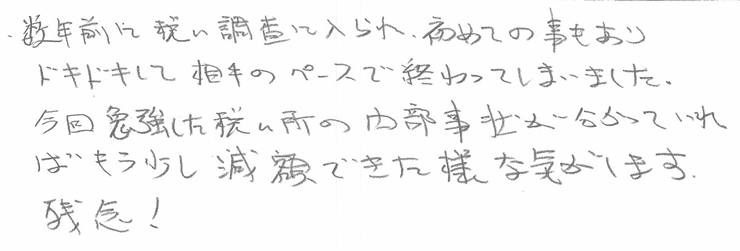 ・数年前に税ム調査に入られ、初めての事もあり
ドキドキして相手のペースで終わってしまいました。
今回勉強した税ム所の内部事状が分かっていれ
ばもう少し減額できた様な気がします。
残念！